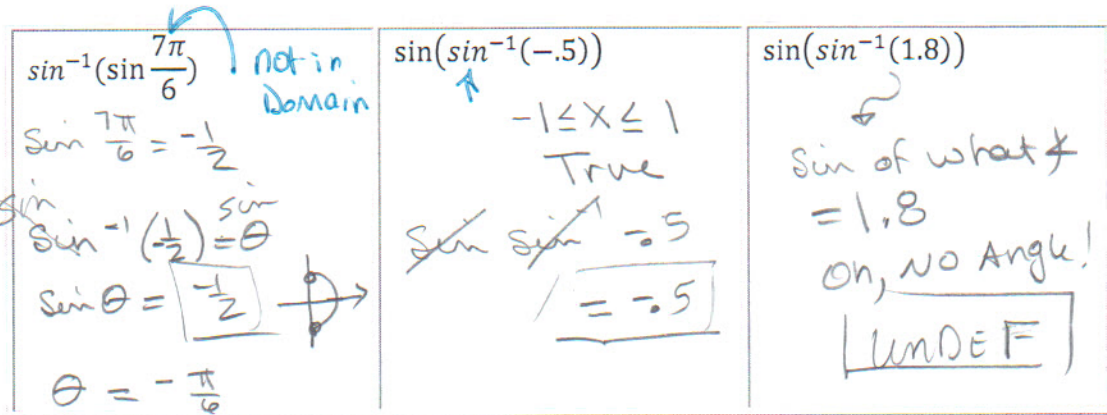 sin⁻¹(sin 7π/6)
not in
Domain
Sin 7π/6 = -1/2
sin sin
Sin⁻¹(-1/2) = θ
Sin θ = -1/2
θ = -π/6
sin(sin⁻¹(−.5))
-1 ≤ x ≤ 1
True
Sin Sin⁻¹ -.5
= -.5
sin(sin⁻¹(1.8))
Sin of what ∡
= 1.8
Oh, NO Angle!
UNDEF